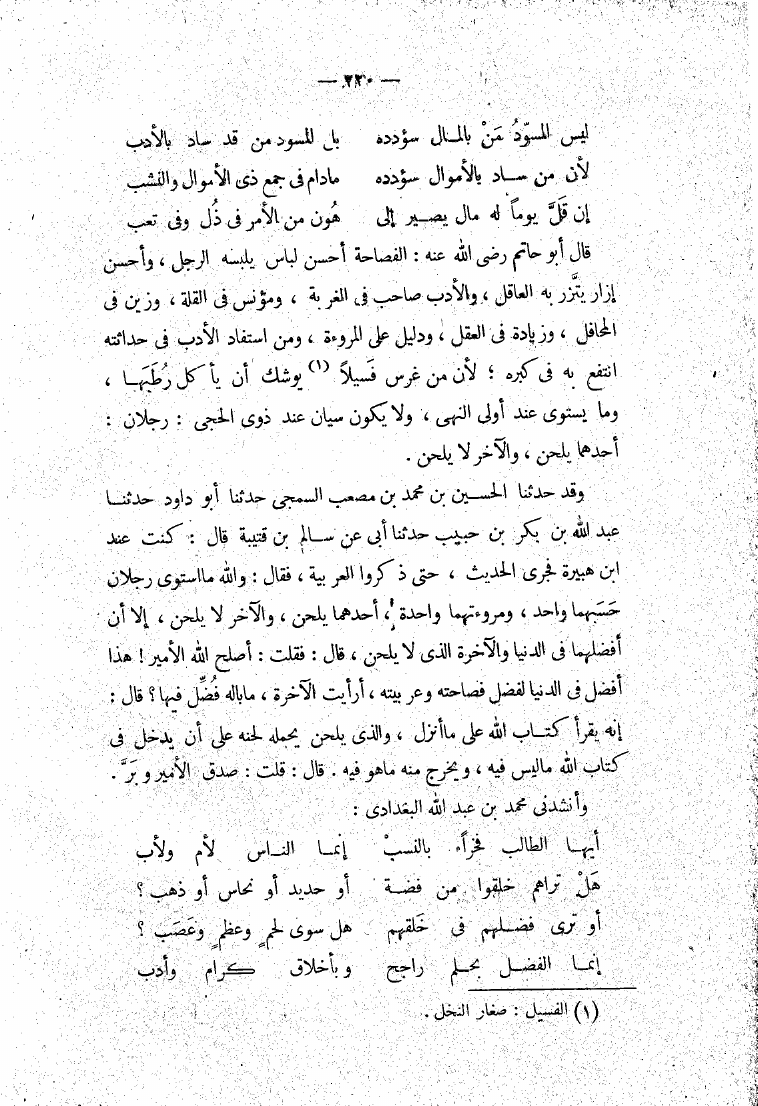 — ٢٢٠ —
ليس المسوّدُ مَنْ بالمال سؤدده بل المسود من قد ساد بالأدب
لأن من ساد بالأموال سؤدده مادام فى جمع ذى الأموال والنشب
إن قَلَّ يوماً له مال يصير إلى هُون من الأمر فى ذُل وفى تعب
قال أبو حاتم رضى الله عنه : الفصاحة أحسن لباس يلبسه الرجل ، وأحسن
إزار يتَّزر به العاقل ، والأدب صاحب فى الغربة ، ومؤنس فى القلة ، وزين فى
المحافل ، وزيادة فى العقل ، ودليل على المروءة ، ومن استفاد الأدب فى حداثته
انتفع به فى كبره ؛ لأن من غرس فَسيلاً (١) يوشك أن يأكل رُطَبَهـا ،
وما يستوى عند أولى النهى ، ولا يكون سيان عند ذوى الحجى : رجلان :
أحدهما يلحن ، والآخر لا يلحن .
وقد حدثنا الحسين بن محمد بن مصعب السمجى حدثنا أبو داود حدثنا
عبد الله بن بكر بن حبيب حدثنا أبى عن سالم بن قتيبة قال : كنت عند
ابن هبيرة فجرى الحديث ، حتى ذكروا العربية ، فقال : والله مااستوى رجلان
حَسَبهما واحد ، ومروءتهما واحدة ، أحدهما يلحن ، والآخر لا يلحن ، إلا أن
أفضلهما فى الدنيا والآخرة الذى لا يلحن ، قال : فقلت : أصلح الله الأمير ! هذا
أفضل فى الدنيا لفضل فصاحته وعربيته ، أرأيت الآخرة ، ماباله فُضِّل فيها ؟ قال :
إنه يقرأ كتاب الله على ماأنزل ، والذى يلحن يحمله لحنه على أن يدخل فى
كتاب الله ماليس فيه ، ويخرج منه ماهو فيه . قال : قلت : صدق الأمير وبَرَّ .
وأنشدنى محمد بن عبد الله البغدادى :
أيهـا الطالب فخراً بالنسبْ إنمـا الناس لأم ولأب
هَلْ تراهم خلقوا من فضة أو حديد أو نحاس أو ذهب ؟
أو ترى فضلهم فى خَلقهم هل سوى لحمٍ وعظمٍ وعَصَب ؟
إنمـا الفضل بحلم راجح وبأخلاق كرام وأدب
(١) الفسيل : صغار النخل .